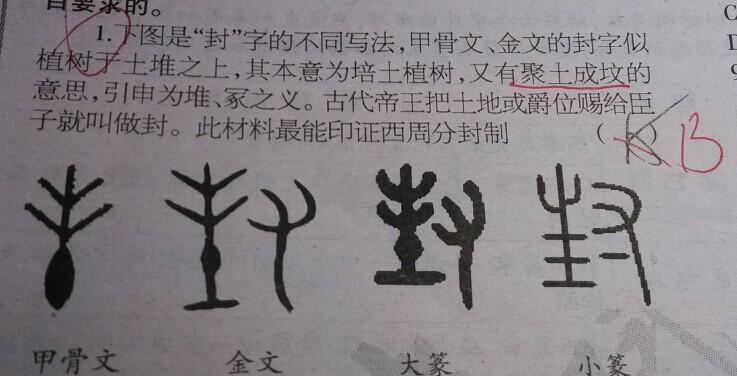 目要求的。
1.下图是“封”字的不同写法,甲骨文、金文的封字似
植树于土堆之上,其本意为培土植树,又有聚土成坟的
意思,引申为堆、冢之义。古代帝王把土地或爵位赐给臣
子就叫做封。此材料最能印证西周分封制 ( ) B
甲骨文 金文 大篆 小篆